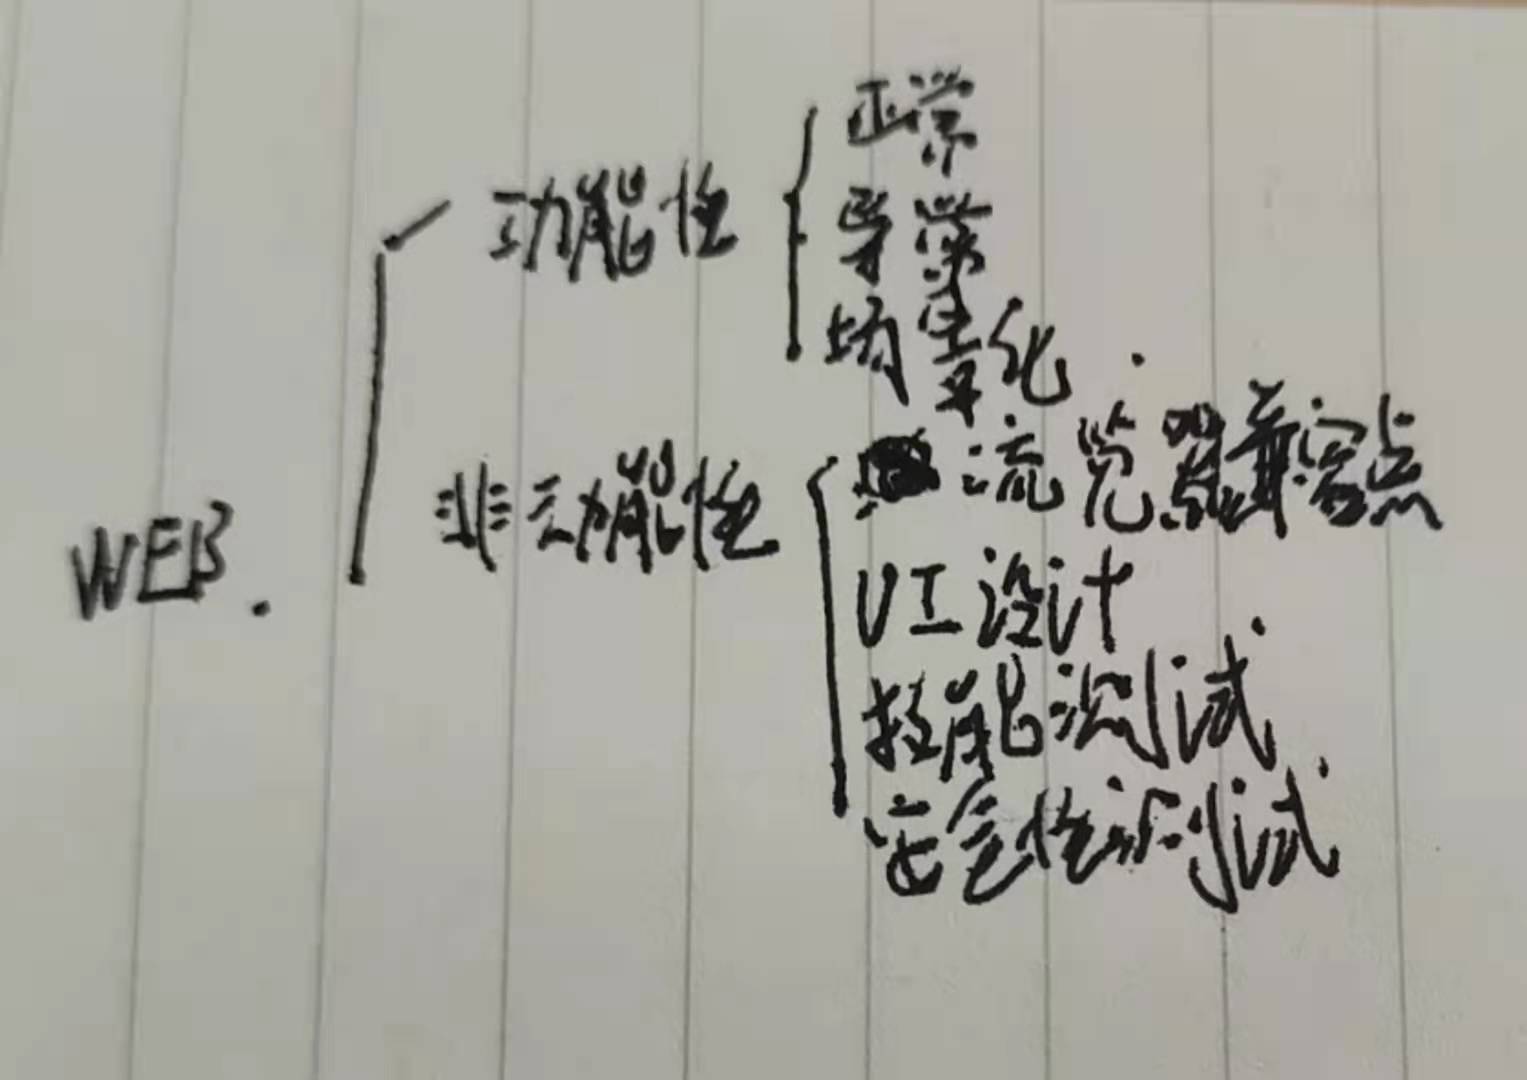 WEB.
功能性
正常
异常
场景化
非功能性
流览器兼容点
UI设计
技能测试
安全性测试